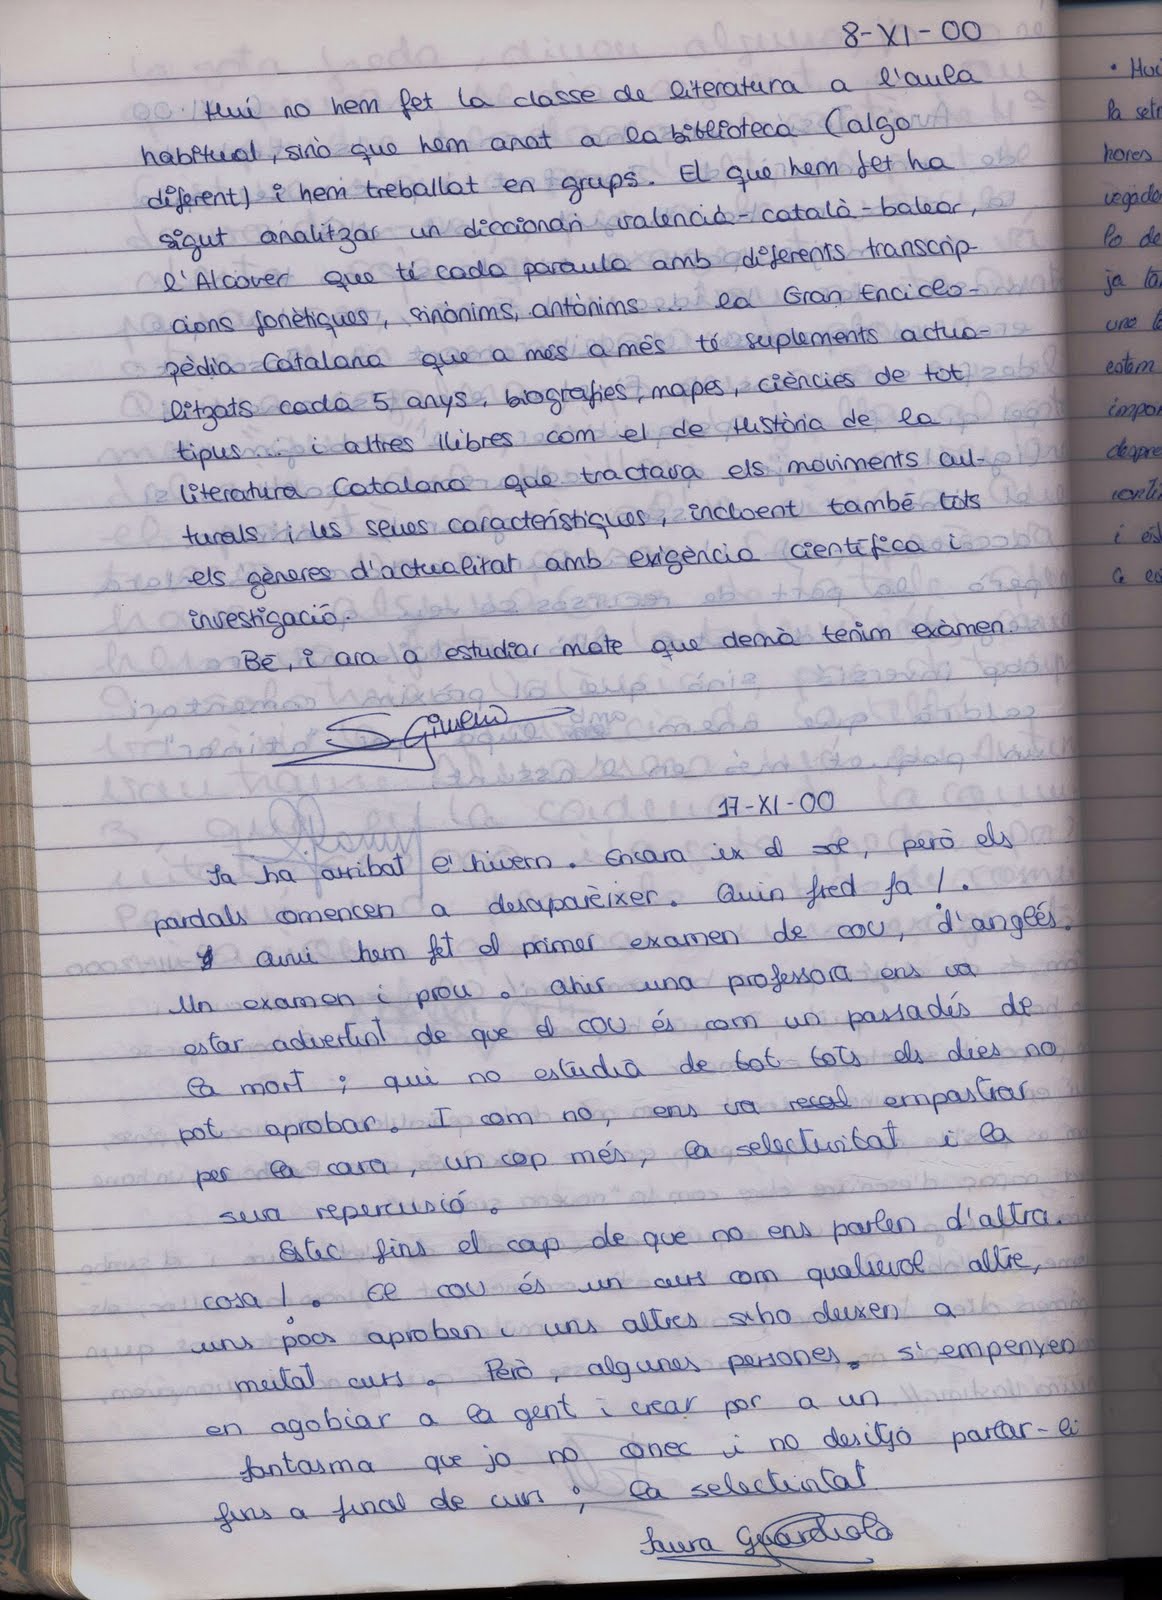 8-XI-00
Hui no hem fet la classe de literatura a l'aula
habitual, sinò que hem anat a la biblioteca (algo
diferent) i hem treballat en grups. El que hem fet ha
sigut analitzar un diccionari valencià-català-balear,
l'Alcover que té cada paraula amb diferents transcrip-
cions fonètiques, sinònims, antònims... la Gran Enciclo-
pèdia Catalana que a més a més té suplements actua-
litzats cada 5 anys, biografies, mapes, ciències de tot
tipus... i altres llibres com el de Història de la
literatura Catalana que tractava els moviments cul-
turals i les seues característiques, incloent també tots
els gèneres d'actualitat amb exigència científica i
investigació.
Bé, i ara a estudiar mate que demà tenim exàmen.
S. Gimeno
17-XI-00
Ja ha arribat l'hivern. Encara ix el sol, però els
pardals comencen a desaparèixer. Quin fred fa!.
Avui hem fet el primer examen de COU, d'anglés.
Un examen i prou. Ahir una professora ens va
estar advertint de que el COU és com un passadés de
la mort; qui no estudia de tot tots els dies no
pot aprobar. I com no, ens va empastrar
per la cara, un cop més, la selectivitat i la
seua repercusió.
Estic fins el cap de que no ens parlen d'altra
cosa!. El COU és un curs com qualsevol altre,
uns pocs aproben i uns altres s'ho deixen a
meital curs. Però, algunes persones, s'empenyen
en agobiar a la gent i crear por a un
fantasma que jo no conec i no desitjo parlar-li
fins a final de curs; la selectivitat.
Laura Guardiola
• Hui
la set
hores
vegade
Po de
ja ta
una
estem
impor
despre
i és
a es